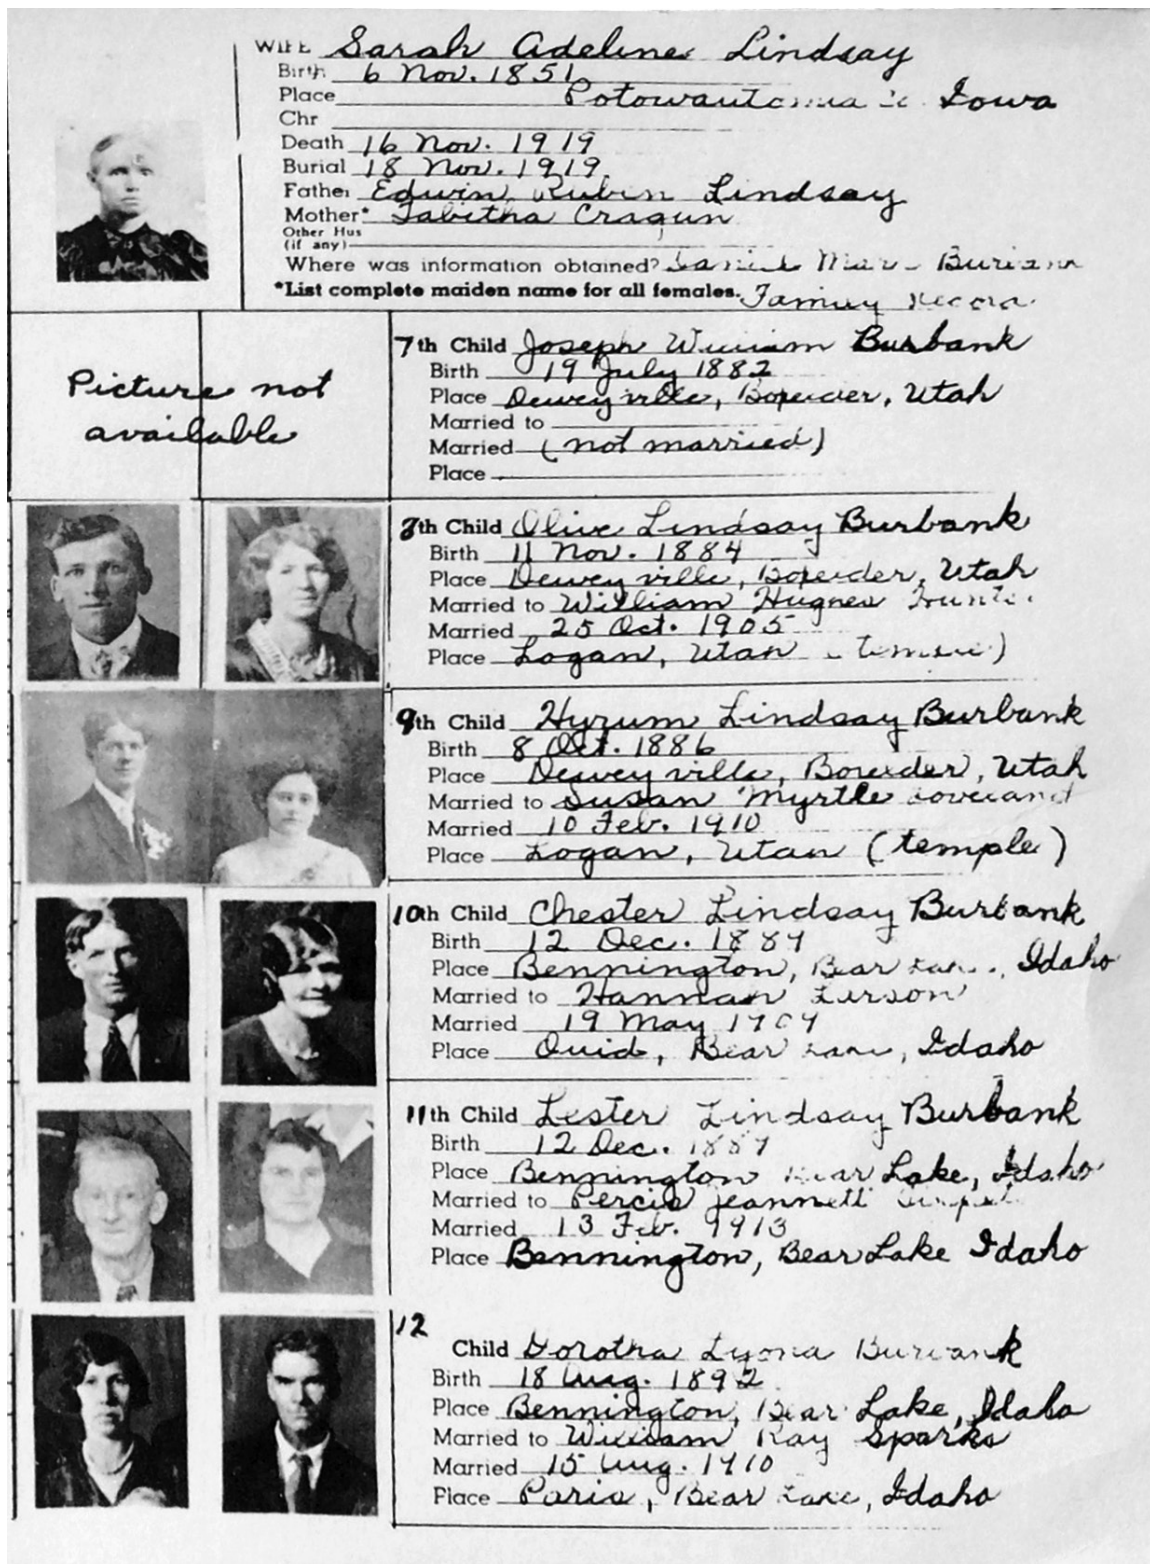 WIFE Sarah Adeline Lindsay
Birth 6 Nov. 1851
Place Iowa
Chr
Death 16 Nov. 1919
Burial 18 Nov. 1919
Father Edwin Rubin Lindsay
Mother* Tabitha Cragun
Other Hus
(if any)
Where was information obtained?
*List complete maiden name for all females. Family Record
Picture not
available
7th Child Joseph William Burbank
Birth 19 July 1882
Place Deweyville, Boxelder, Utah
Married to
Married (not married)
Place
8th Child Olive Lindsay Burbank
Birth 11 Nov. 1884
Place Deweyville, Boxelder, Utah
Married to William Hughes Hunter
Married 25 Oct. 1905
Place Logan, Utah (temple)
9th Child Hyrum Lindsay Burbank
Birth 8 Oct. 1886
Place Deweyville, Boxelder, Utah
Married to Susan Myrtle Loveland
Married 10 Feb. 1910
Place Logan, Utah (temple)
10th Child Chester Lindsay Burbank
Birth 12 Dec. 1889
Place Bennington, Bear Lake, Idaho
Married to Hannah Larson
Married 19 May 1909
Place Ovid, Bear Lake, Idaho
11th Child Lester Lindsay Burbank
Birth 12 Dec. 1889
Place Bennington Bear Lake, Idaho
Married to Percis Jeannett
Married 13 Feb. 1913
Place Bennington, Bear Lake Idaho
12
Child Dorotha Lyona Burbank
Birth 18 Aug. 1892
Place Bennington, Bear Lake, Idaho
Married to William Ray Sparks
Married 15 Aug. 1910
Place Paris, Bear Lake, Idaho